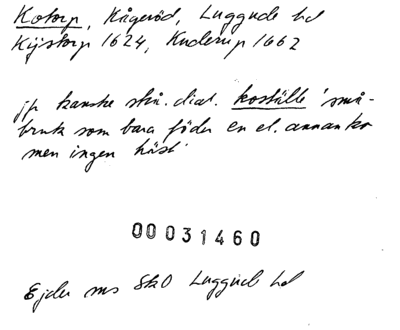 Kotorp, Kågeröd, Luggude hd
Kijstorp 1624, Kuderup 1662
jfr kanske skå. dial. koställe 'små-
bruk som bara föder en el. annan ko
men ingen häst'
00031460
Ejder ms SkO Luggude hd